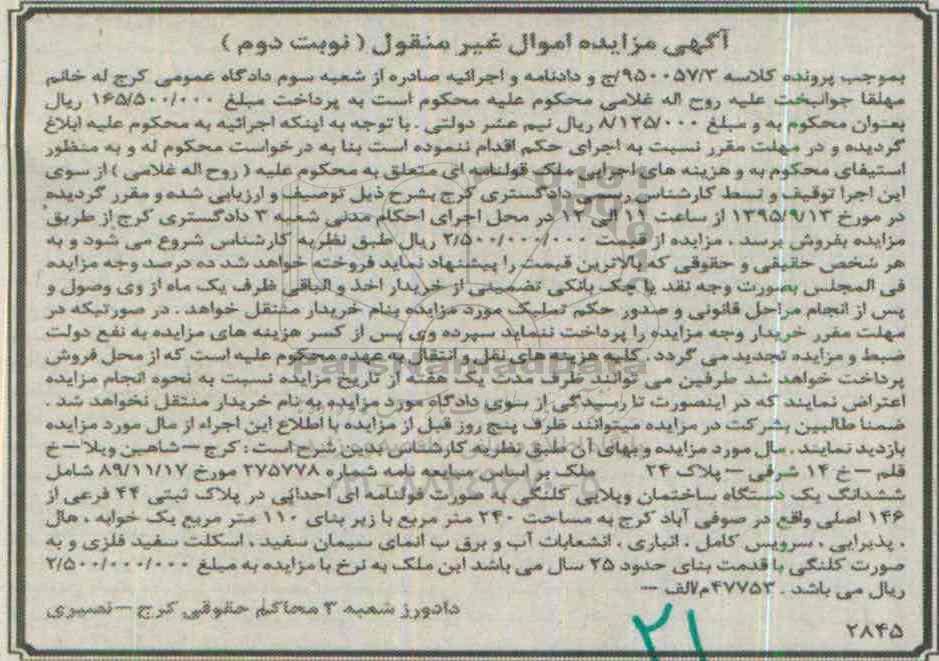 آگهی مزایده اموال غیر منقول ( نوبت دوم )
بموجب پرونده کلاسه ۹۵۰۰۵۷/۳/ج و دادنامه و اجرائیه صادره از شعبه سوم دادگاه عمومی کرج له خانم
مهلقا جوانبخت علیه روح اله غلامی محکوم علیه محکوم است به پرداخت مبلغ ۱۶۵/۵۰۰/۰۰۰ ریال
بعنوان محکوم به و مبلغ ۸/۱۲۵/۰۰۰ ریال نیم عشر دولتی . با توجه به اینکه اجرائیه به محکوم علیه ابلاغ
گردیده و در مهلت مقرر نسبت به اجرای حکم اقدام ننموده است بنا به درخواست محکوم له و به منظور
استیفای محکوم به و هزینه های اجرایی ملک قولنامه ای متعلق به محکوم علیه ( روح اله غلامی ) از سوی
این اجرا توقیف و تسط کارشناس رسمی دادگستری کرج بشرح ذیل توصیف و ارزیابی شده و مقرر گردیده
در مورخ ۱۳۹۵/۹/۱۳ از ساعت ۱۱ الی ۱۲ در محل اجرای احکام مدنی شعبه ۳ دادگستری کرج از طریق
مزایده بفروش برسد . مزایده از قیمت ۲/۵۰۰/۰۰۰/۰۰۰ ریال طبق نظریه کارشناس شروع می شود و به
هر شخص حقیقی و حقوقی که بالاترین قیمت را پیشنهاد نماید فروخته خواهد شد ده درصد وجه مزایده
فی المجلس بصورت وجه نقد یا چک بانکی تضمینی از خریدار اخذ و الباقی ظرف یک ماه از وی وصول و
پس از انجام مراحل قانونی و صدور حکم تملیک مورد مزایده بنام خریدار منتقل خواهد . در صورتیکه در
مهلت مقرر خریدار وجه مزایده را پرداخت ننماید سپرده وی پس از کسر هزینه های مزایده به نفع دولت
ضبط و مزایده تجدید می گردد . کلیه هزینه های نقل و انتقال به عهده محکوم علیه است که از محل فروش
پرداخت خواهد شد طرفین می توانند ظرف مدت یک هفته از تاریخ مزایده نسبت به نحوه انجام مزایده
اعتراض نمایند که در اینصورت تا رسیدگی از سوی دادگاه مورد مزایده به نام خریدار منتقل نخواهد شد .
ضمنا طالبین بشرکت در مزایده میتوانند ظرف پنج روز قبل از مزایده با اطلاع این اجراء از مال مورد مزایده
بازدید نمایند . مال مورد مزایده و بهای آن طبق نظریه کارشناس بدین شرح است : کرج – شاهین ویلا – خ
قلم – خ ۱۴ شرقی – پلاک ۲۴ ملک بر اساس مبایعه نامه شماره ۲۷۵۷۷۸ مورخ ۸۹/۱۱/۱۷ شامل
ششدانگ یک دستگاه ساختمان ویلایی کلنگی به صورت قولنامه ای احداثی در پلاک ثبتی ۴۴ فرعی از
۱۴۶ اصلی واقع در صوفی آباد کرج به مساحت ۲۴۰ متر مربع با زیر بنای ۱۱۰ متر مربع یک خوابه ، هال
، پذیرایی ، سرویس کامل ، انباری ، انشعابات آب و برق ب انمای سیمان سفید ، اسکلت سفید فلزی و به
صورت کلنگی با قدمت بنای حدود ۲۵ سال می باشد این ملک به نرخ با مزایده به مبلغ ۲/۵۰۰/۰۰۰/۰۰۰
ریال می باشد . ۴۷۷۵۳م/الف –
دادورز شعبه ۳ محاکم حقوقی کرج – نصیری
۲۸۴۵
۲۱
ParsNamadData